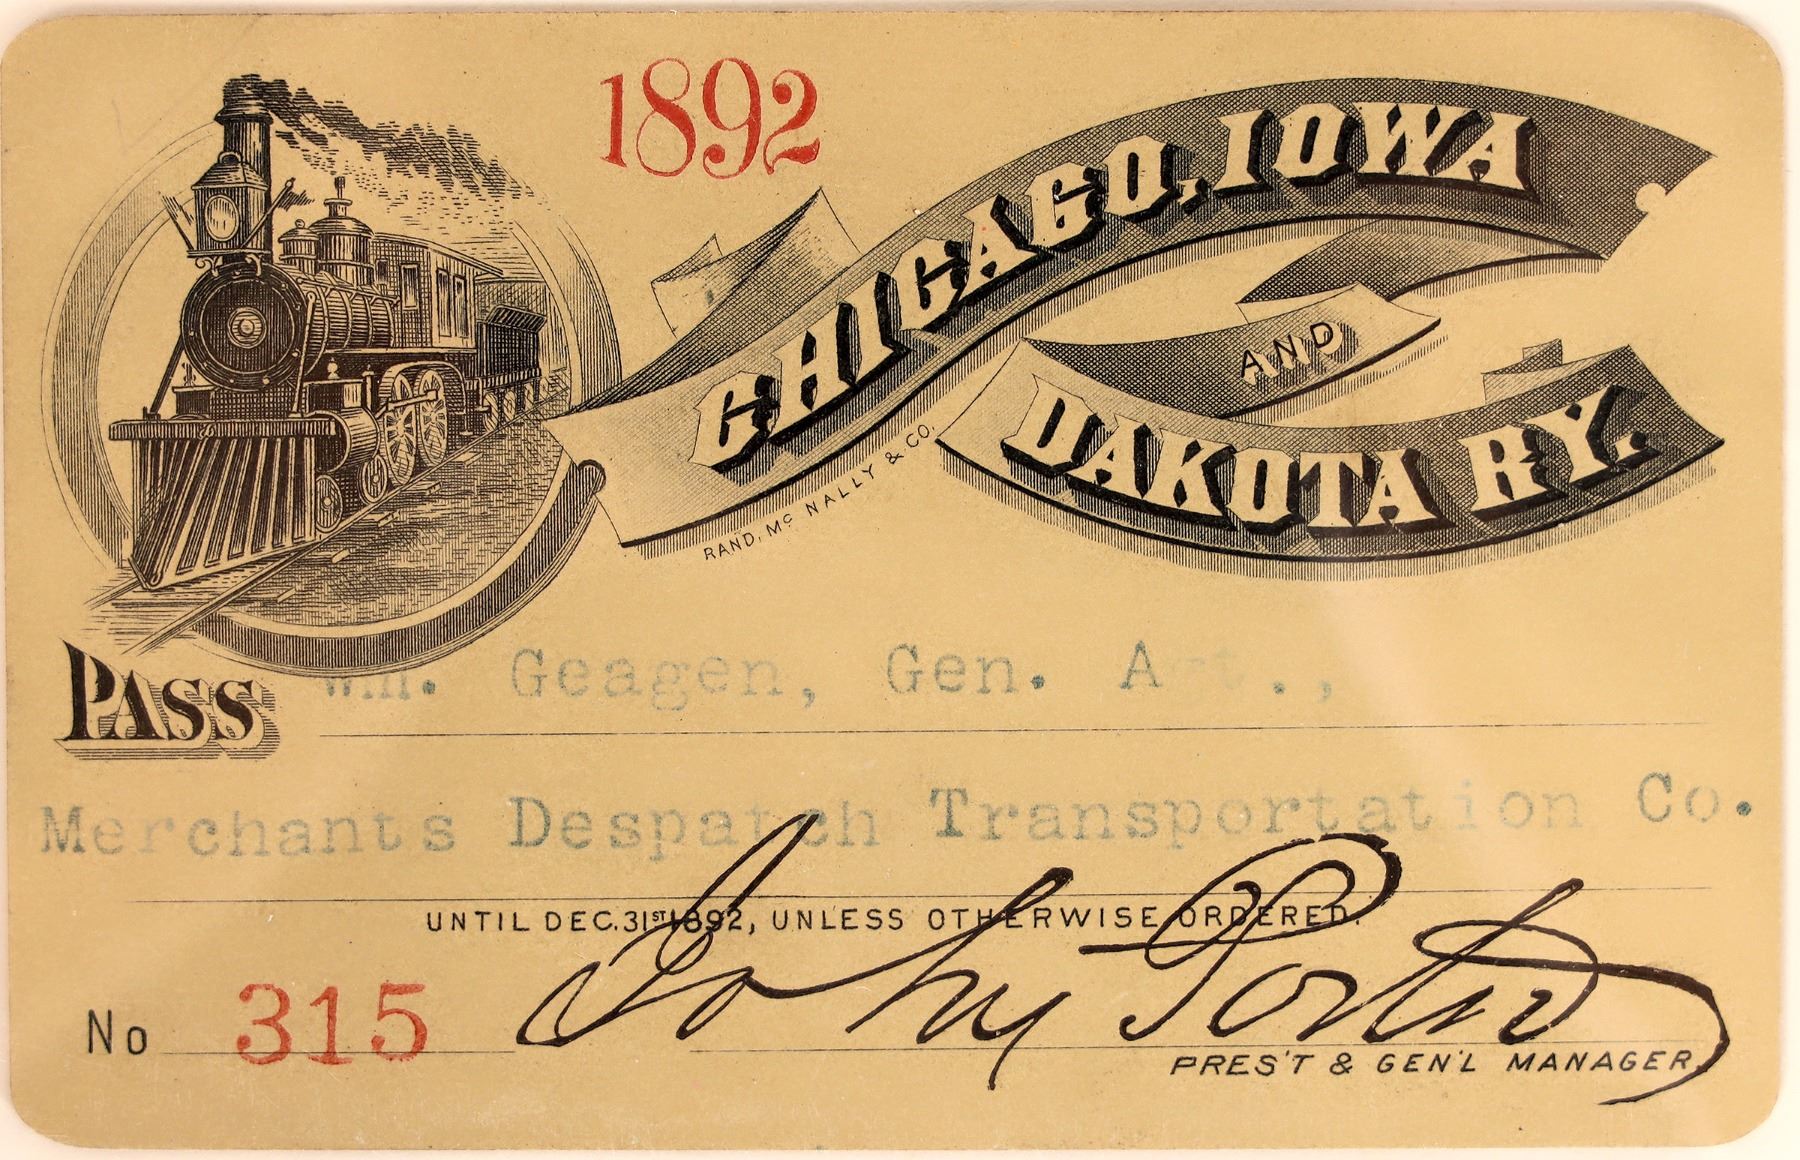 1892
CHICAGO, IOWA
AND
DAKOTA RY.
RAND, Mc NALLY & CO.
PASS Wm. Geagen, Gen. A t.,
Merchants Despatch Transportation Co.
UNTIL DEC. 31ST 1892, UNLESS OTHERWISE ORDERED.
No 315
John Porter
PRES'T & GEN'L MANAGER.